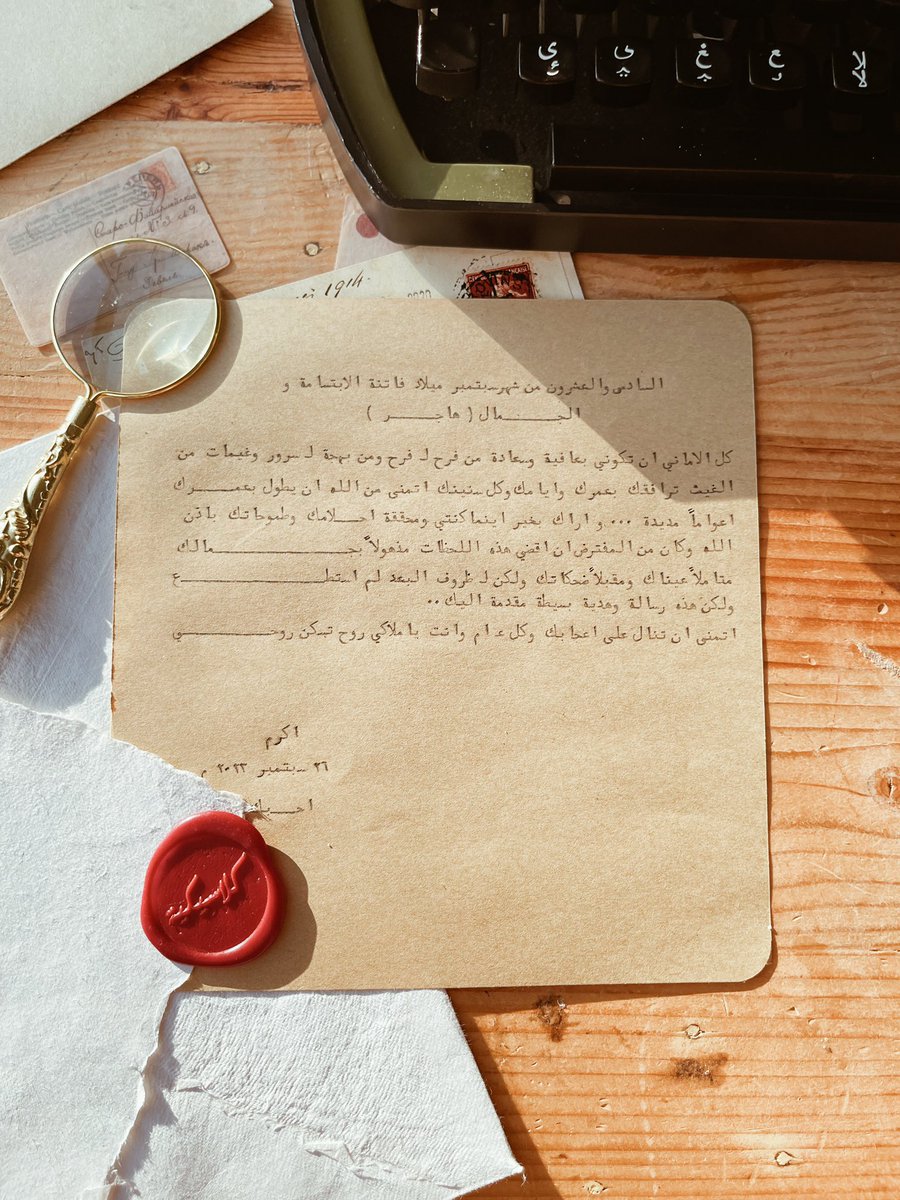 السادس والعشرون من شهر سبتمبر ميلاد فاتنة الابتسامة و
الجـــــمال ( هاجـــــر )
كل الاماني ان تكوني بعافية وسعادة من فرح لـ فرح ومن بهجة لـ سرور وغيمات من
الغيث ترافقك بعمرك وايامك وكل سنينك اتمنى من الله ان يطول بعمـــــرك
اعواماً مديدة ... و اراك بخير اينما كنتي ومحققة احـــلامك وطموحاتك باذن
الله وكان من المفترض ان اقضي هذه اللحظات مذهولاً بجـــــــــمالك
متاملاً عيناك ومقبلاً ضحكاتك ولكن لـ ظروف البعد لم استطـــــــــع
ولكن هذه رسالة وهدية بسيطة مقدمة اليك..
اتمنى ان تنال على اعجابك وكل عام وانت يا ملاكي روح تسكن روحـــــــي
اكرم
٢٦ سبتمبر ٢٠٢٣ م
احـــبك
كلاسيكية
1914
ئ
غ
لا